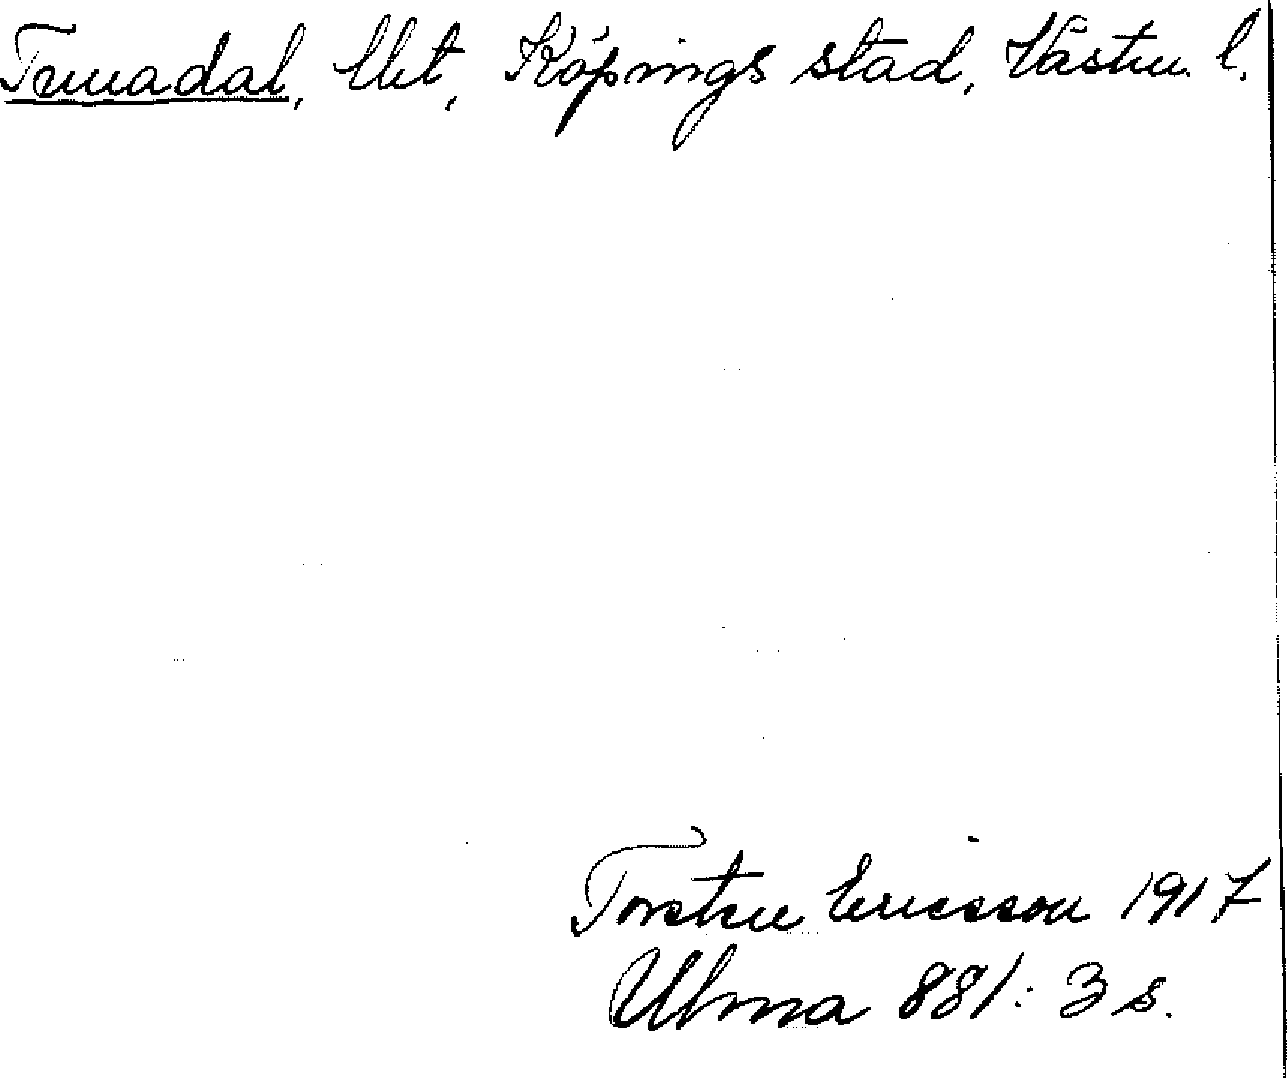 Tunadal, lht, Köpings stad, Västm. l.
Torsten Ericsson 1917
Ulma 881: 3 s.